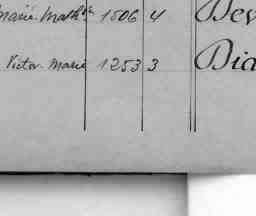 Marie Math^de 1506 4 Dev
Victor Marie 1253 3 Dia